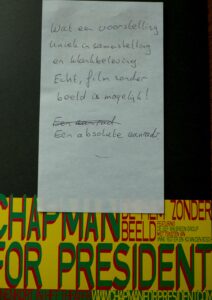 Wat een voorstelling
uniek in samenstelling
en klankbeleving.
Echt, film zonder
beeld is mogelijk!
Een aanrad
Een absolute aanrader
CHAPMAN
FOR PRESIDENT
ZONDER
BEELD
WWW.CHAPMANFORPRESIDENT